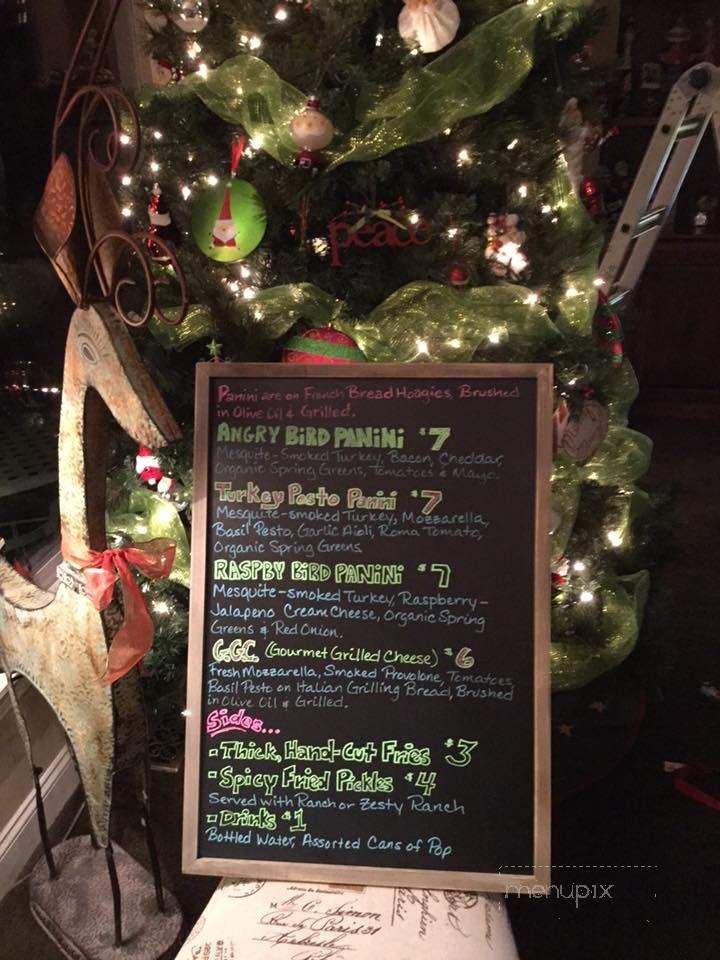 peace
Panini are on French Bread Hoagies, Brushed
in Olive Oil & Grilled.
ANGRY BIRD PANINI $7
Mesquite-Smoked Turkey, Bacon, Cheddar,
Organic Spring Greens, Tomatoes & Mayo.
Turkey Pesto Panini $7
Mesquite-smoked Turkey, Mozzarella,
Basil Pesto, Garlic Aioli, Roma Tomato,
Organic Spring Greens
RASPBY BIRD PANINI $7
Mesquite-smoked Turkey, Raspberry-
Jalapeno Cream Cheese, Organic Spring
Greens & Red Onion.
G.G.C. (Gourmet Grilled Cheese) $6
Fresh Mozzarella, Smoked Provolone, Tomatoes
Basil Pesto on Italian Grilling Bread, Brushed
in Olive Oil & Grilled.
Sides...
-Thick, Hand-Cut Fries $3
-Spicy Fried Pickles $4
Served with Ranch or Zesty Ranch
-Drinks $1
Bottled Water, Assorted Cans of Pop
menupix
Simon
Paris